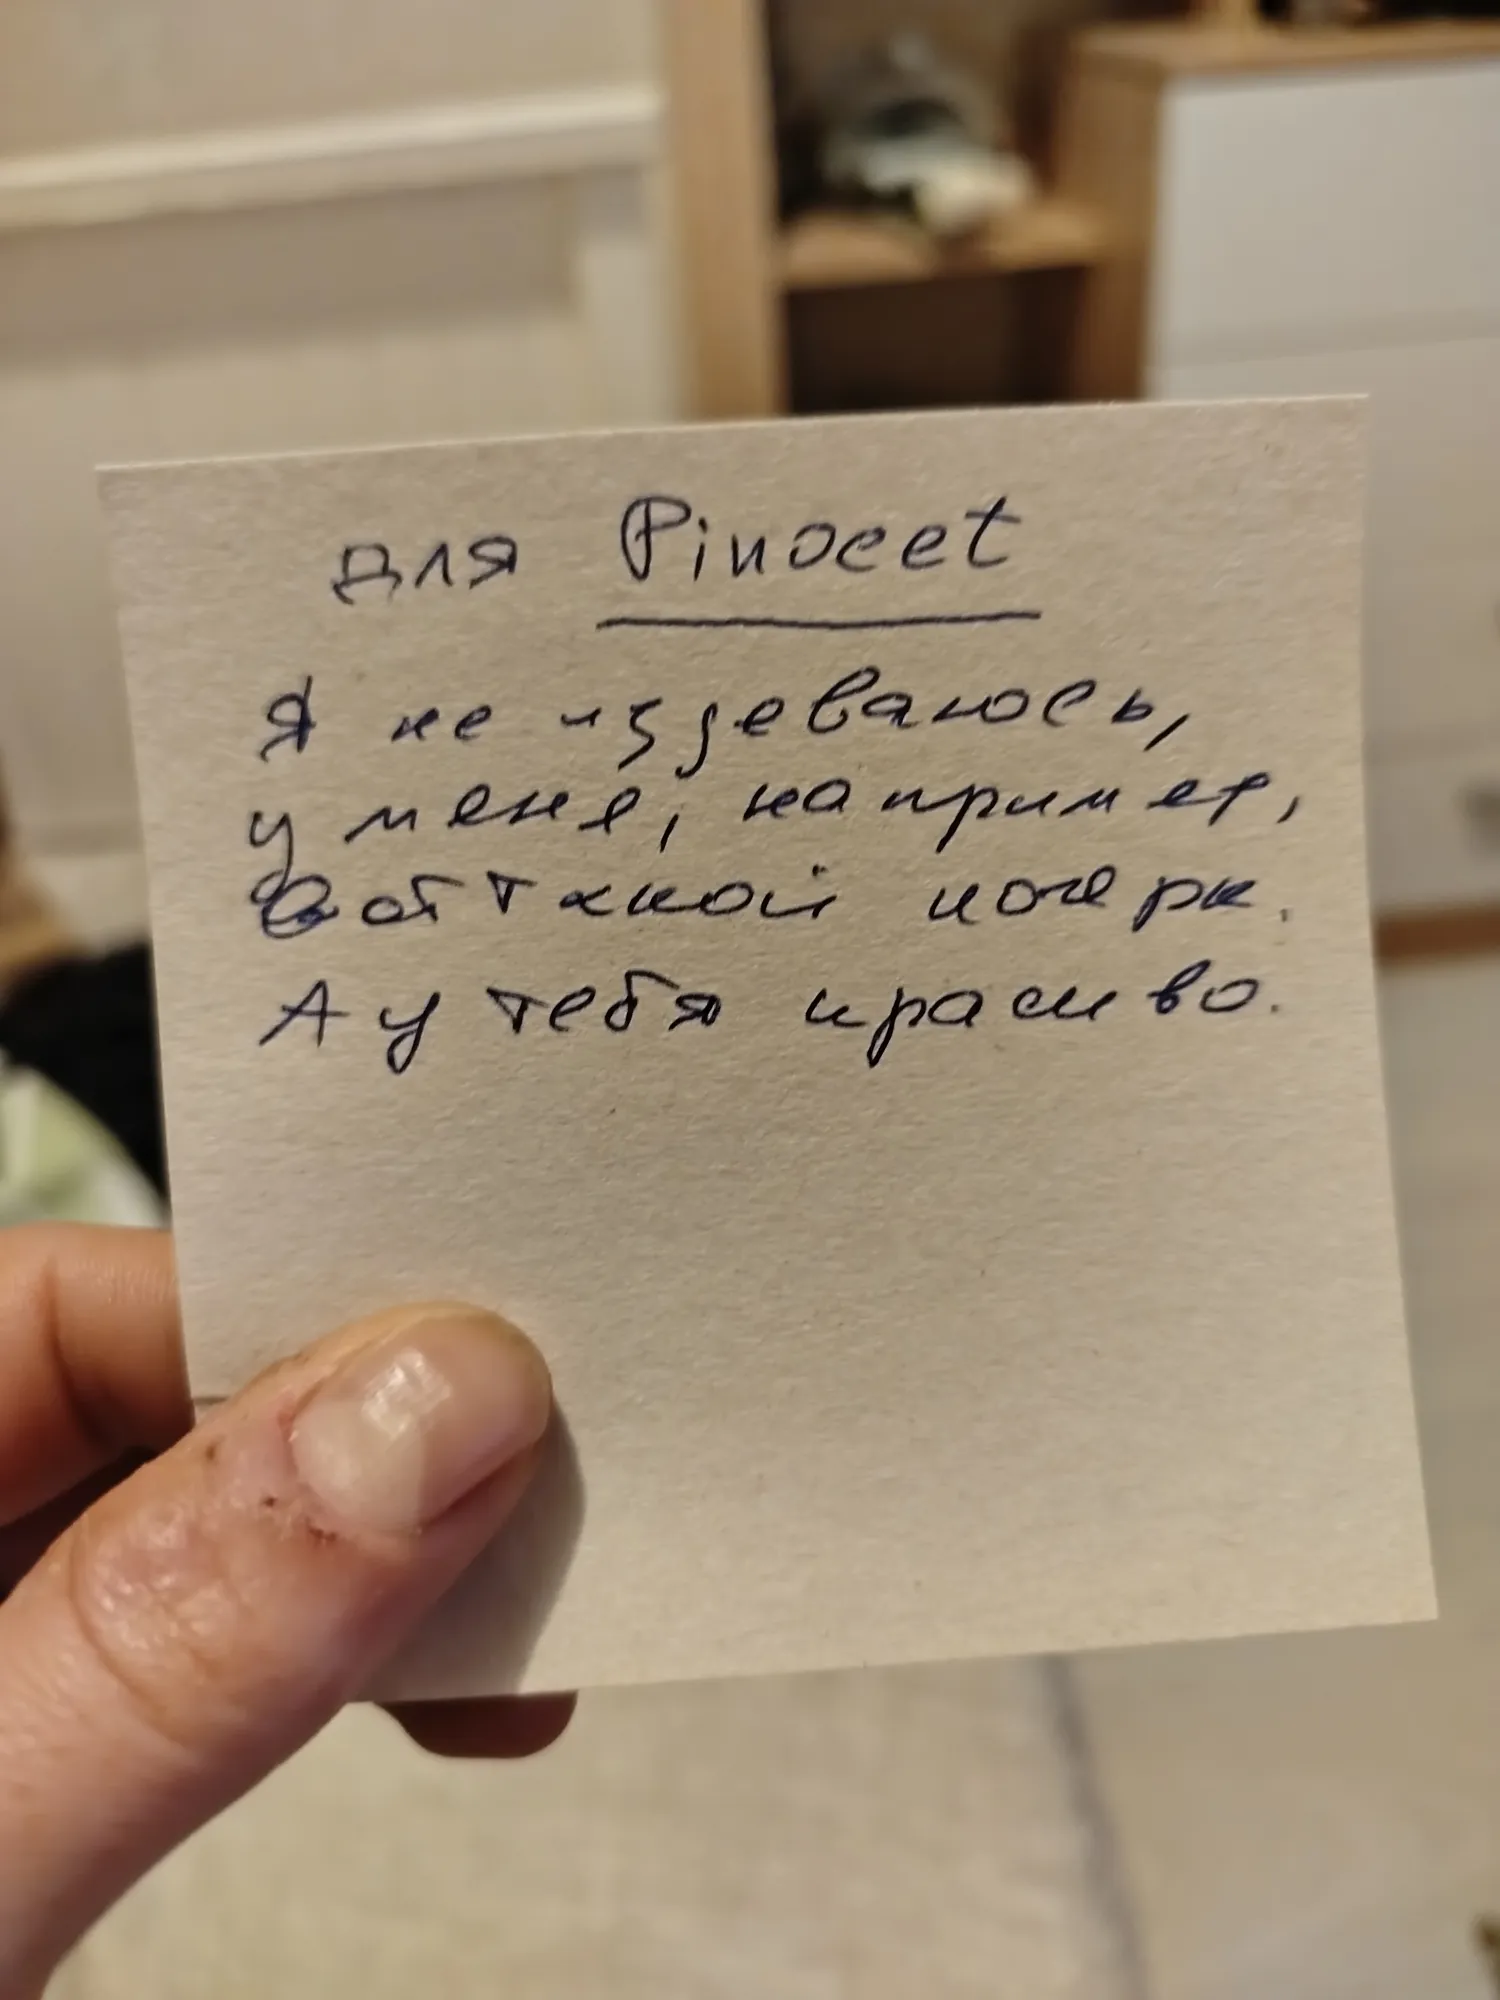 для Pinocet
Я не издеваюсь,
у меня, например,
вот такой почерк.
А у тебя красиво.